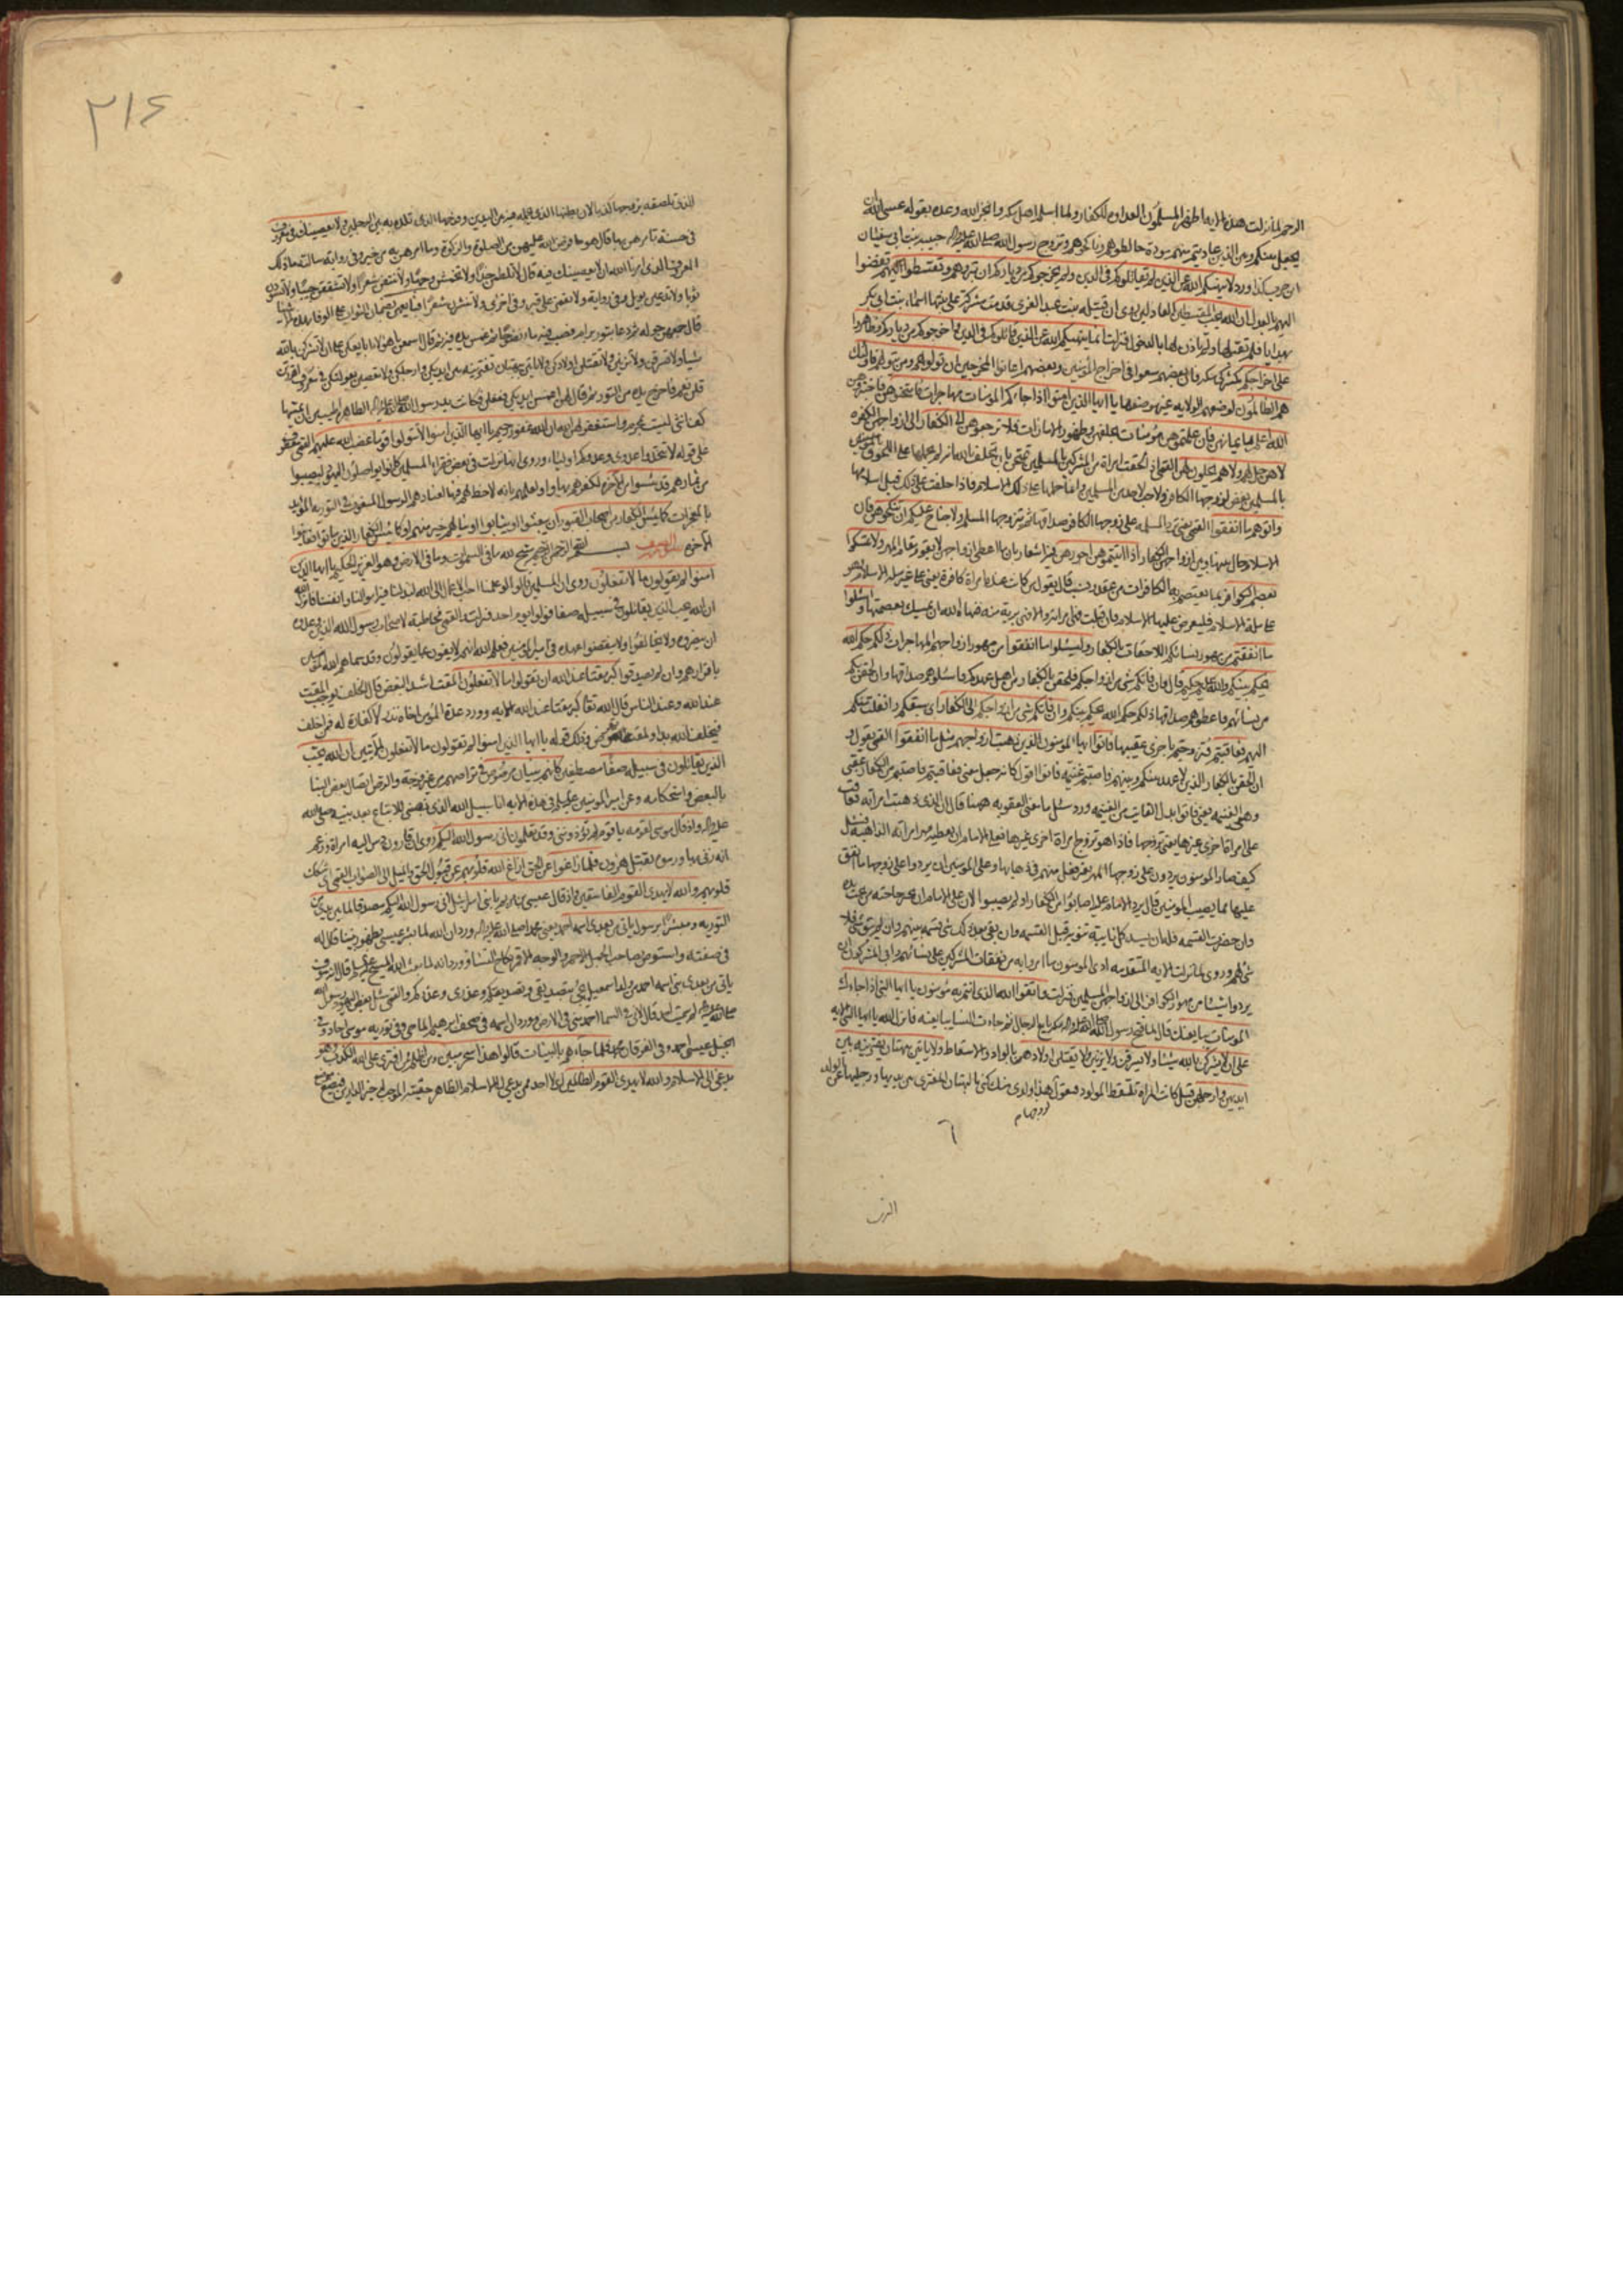 الرحم لما نزلت هذه الايه اظهر المسلمون العداوه للكفار ولما اسلم اهل مكه وانجز الله وعده بقوله عسى الله ان
يجعل بينكم وبين الذين عاديتم منهم مودة خالطوهم وناكحوهم وتزوج رسول الله صلى الله عليه واله حبيبه بنت ابى سفيان
ابن حرب كذا ورد لا ينهيكم الله عن الذين لم يقاتلوكم فى الدين ولم يخرجوكم من دياركم ان تبروهم وتقسطوا اليهم تفضوا
اليهم بالعدل ان الله يحب المقسطين العادلين روى ان قتيله بنت عبد العزى قدمت مشركة على بنتها اسماء بنت ابى بكر
بهدايا فلم تقبلها ولم تاذن لها بالدخول فنزلت انما ينهيكم الله عن الذين قاتلوكم فى الدين واخرجوكم من دياركم وظاهروا
على اخراجكم كمشركى مكه فان بعضهم سعوا فى اخراج المؤمنين وبعضهم اعانوا المخرجين ان تولوهم ومن يتولهم فاولئك
هم الظالمون لوضعهم الولايه غير موضعها يا ايها الذين امنوا اذا جاءكم المؤمنات مهاجرات فامتحنوهن فاختبروهن
الله اعلم بايمانهن فان علمتموهن مؤمنات بحلفهن وظهور الامارات فلا ترجعوهن الى الكفار الى ازواجهن الكفره
لا هن حل لهم ولا هم يحلون لهن القمى اذا لحقت امراة من المشركين بالمسلمين تمتحن بان تحلف بالله انه لم يحملها على اللحوق
بالمسلمين بغض لزوجها الكافر ولا حب لاحد من المسلمين وانما حملها على ذلك الاسلام فاذا حلفت على ذلك قبل اسلامها
واتوهم ما انفقوا القمى يعنى ترد المسلمه على زوجها الكافر صداقها ثم يتزوجها المسلم ولا جناح عليكم ان تنكحوهن فان
الاسلام حال بينها وبين ازواجهن الكفار اذا اتيتموهن اجورهن فيه اشعار بان ما اعطى ازواجهن لا يقوم مقام المهر ولا تمسكوا
بعصم الكوافر بما يعتصم به الكافرات من عقد ونسب قال يقول من كانت عنده امراة كافرة يعنى على غير مله الاسلام وهو
على ملة الاسلام فليعرض عليها الاسلام فان قبلت فهى امراته والا فهى بريئة منه فنهى الله ان يمسك بعصمتها واسئلوا
ما انفقتم من مهور نسائكم اللاحقات بالكفار وليسئلوا ما انفقوا من مهور ازواجهم المهاجرات ذلكم حكم الله
يحكم بينكم والله عليم حكيم قال وان فاتكم شئ من ازواجكم فلحقن بالكفار من اهل عهدكم فاسئلوهم صداقها وان لحقن بكم
من نسائهم فاعطوهم صداقها ذلكم حكم الله يحكم بينكم وان فاتكم شئ من ازواجكم الى الكفار اى سبقكم وانفلت منكم
اليهم فعاقبتم فتزوجتم باخرى عقيبها فاتوا ايها المؤمنون الذين ذهبت ازواجهم مثل ما انفقوا القمى يقول و
ان لحقن بالكفار الذين لا عهد بينكم وبينهم فاصبتم غنيمه فاتوا اقول كانه جعل معنى فعاقبتم فاصبتم من الكفار عقبى
وهى الغنيمه يعنى فاتوا بدل الفايت من الغنيمه ورد سئل ما معنى العقوبه ههنا قال ان الذى ذهبت امراته فعاقب
على امراة اخرى غيرها يعنى تزوجها فاذا هو تزوج امراة اخرى غيرها فعلى الامام ان يعطيه مهر امراته الذاهبة فسئل
كيف صار المؤمنون يردون على زوجها المهر بغير فعل منهم فى ذهابها وعلى المؤمنين ان يردوا على زوجها ما انفق
عليها مما يصيب المؤمنين قال يرد الامام عليه اصابوا من الكفار او لم يصيبوا لان على الامام ان يجبر حاجته من تحت يده
وان حضرت القسمه فله ان يسد كل نايبة تنوبه قبل القسمه وان بقى بعد ذلك شئ قسمه بينهم وان لم يبق شئ فلا
شئ لهم وروى لما نزلت الايه المتقدمه ادى المؤمنون ما امروا به من نفقات المشركين على نسائهم وابى المشركون ان
يردوا شيئا من مهور الكوافر الى ازواجهن المسلمين فنزلت واتقوا الله الذى انتم به مؤمنون يا ايها النبى اذا جاءك
المؤمنات يبايعنك قال لما فتح رسول الله صلى الله عليه واله مكه بايع الرجال ثم جاءت النساء يبايعنه فانزل الله يا ايها النبى الايه
على ان لا يشركن بالله شيئا ولا يسرقن ولا يزنين ولا يقتلن اولادهن بالواد والاسقاط ولا ياتين ببهتان يفترينه بين
ايديهن وارجلهن قيل كانت المراة تلتقط المولود فتقول لزوجها هذا ولدى منك كنى بالبهتان المفترى بين يديها ورجليها عن الولد
الذى
٢١٤
الذى تلصقه بزوجها كذبا لان بطنها الذى تحمله فيه بين اليدين وفرجها الذى تلده به بين الرجلين ولا يعصينك فى معروف
فى حسنة تامرهن بها قال هو ما فرض الله عليهن من الصلوة والزكوة وما امرهن به من خير وفى رواية سالت ما ذلك
المعروف الذى امرنا الله ان لا نعصينك فيه قال لا تلطمن خدا ولا تخمشن وجها ولا تنتفن شعرا ولا تشققن جيبا ولا تسودن
ثوبا ولا تدعين بويل وفى رواية ولا تقمن على قبر وفى اخرى ولا تنشرن شعرا فبايعهن بضمان الثواب على الوفاء بهذه الاشياء
قال جمعهن حوله ثم دعا بتور برام فصب فيه ماء نضوحا ثم غمس يده فيه ثم قال اسمعن يا هؤلاء ابايعكن على ان لا تشركن بالله
شيئا ولا تسرقن ولا تزنين ولا تقتلن اولادكن ولا تاتين ببهتان تفترينه بين ايديكن وارجلكن ولا تعصين بعولتكن فى معروف اقررتن
قلن نعم فاخرج يده من التور ثم قال لهن اغمسن ايديكن ففعلن فكانت يد رسول الله صلى الله عليه واله الطاهره اطيب من ان يمس بها
كف انثى ليست بمحرم واستغفر لهن الله ان الله غفور رحيم يا ايها الذين امنوا لا تتولوا قوما غضب الله عليهم القمى معطوف
على قوله لا تتخذوا عدوى وعدوكم اولياء وروى انها نزلت فى بعض فقراء المسلمين كانوا يواصلون اليهود ليصيبوا
من ثمارهم قد يئسوا من الاخره لكفرهم بها او لعلمهم بانه لا حظ لهم فيها لعنادهم الرسول المنعوت فى التوريه المؤيد
بالمعجزات كما يئس الكفار من اصحاب القبور ان يبعثوا او يثابوا او ينالهم خير منهم او كما يئس الكفار الذين ماتوا فعاينوا
الاخره سورة الصف بسم الله الرحمن الرحيم سبح لله ما فى السموات وما فى الارض وهو العزيز الحكيم يا ايها الذين
امنوا لم تقولون ما لا تفعلون روى ان المسلمين قالوا لو علمنا احب الاعمال الى الله لبذلنا فيه اموالنا وانفسنا فانزل الله
ان الله يحب الذين يقاتلون فى سبيله صفا فولوا يوم احد فنزلت القمى مخاطبة لاصحاب رسول الله الذين وعدوه
ان ينصروه ولا يخالفوا امره ولا ينقضوا عهده فى امير المؤمنين فعلم الله انهم لا يفون بما يقولون وقد سماهم الله المؤمنين
باقرارهم وان لم يصدقوا كبر مقتا عند الله ان تقولوا ما لا تفعلون المقت اشد البغض قال الخلف يوجب المقت
عند الله وعند الناس قال الله تعالى كبر مقتا عند الله الايه وورد عدة المؤمن اخاه نذر لا كفارة له فمن اخلف
فبخلف الله بدا ولمقته تعرض وذلك قوله يا ايها الذين امنوا لم تقولون ما لا تفعلون الايتين ان الله يحب
الذين يقاتلون فى سبيله صفا مصطفين كانهم بنيان مرصوص فى تراصهم من غير فرجة والرص اتصال بعض البناء
بالبعض واستحكامه وعن امير المؤمنين عليه السلم فى هذه الايه انا سبيل الله الذى نصبنى للاتباع بعد نبيه صلى الله
عليه واله واذ قال موسى لقومه يا قوم لم تؤذوننى وقد تعلمون انى رسول الله اليكم روى ان قارون دس اليه امراة وزعم
انه زنى بها ورموه بقتل هرون فلما زاغوا عن الحق ازاغ الله قلوبهم عن قبول الحق والميل الى الصواب القمى اى شكك
قلوبهم والله لا يهدى القوم الفاسقين واذ قال عيسى بن مريم يا بنى اسرائيل انى رسول الله اليكم مصدقا لما بين يدى من
التوريه ومبشرا برسول ياتى من بعدى اسمه احمد يعنى محمد صلى الله عليه واله ورد ان الله لما بشر عيسى بظهور نبينا قال له
فى صفته واستوص بصاحب الجمل الاحمر والوجه الاقمر نكاح النساء وورد انه لما بعث الله المسيح عليه السلم قال انه سوف
ياتى من بعدى نبى اسمه احمد من ولد اسمعيل يجئ بتصديقى وتصديقكم وعذرى وعذركم والقمى سئل بعض اليهود رسول الله
صلى الله عليه واله لم سميت احمد قال لانى فى السماء احمد منى فى الارض وورد ان اسمه فى صحف ابرهيم الماحى وفى توريه موسى الحاد وفى
انجيل عيسى احمد وفى الفرقان محمد فلما جاءهم بالبينات قالوا هذا سحر مبين ومن اظلم ممن افترى على الله الكذب وهو
يدعى الى الاسلام والله لا يهدى القوم الظالمين اى لا احد اظلم ممن يدعى الى الاسلام الظاهر حقيته الموجب له خير الدارين فيضع موضع